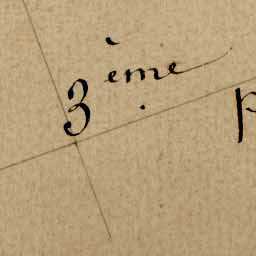 3ème p